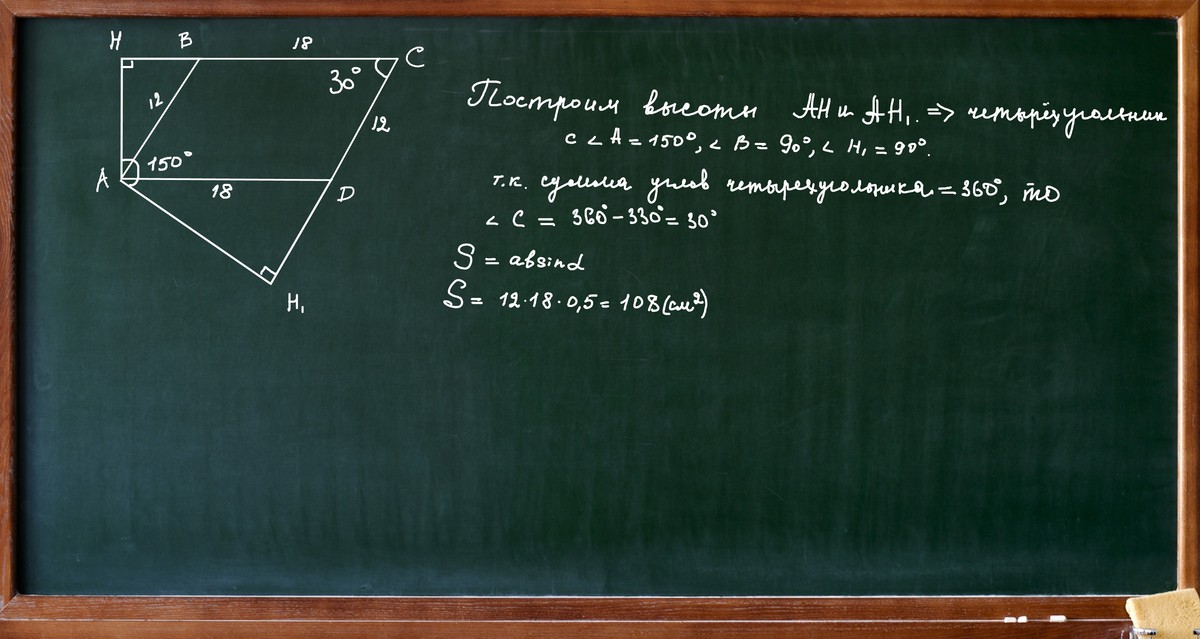 H B 18 C
30°
12
12
150°
A 18 D
H₁
Построим высоты AH и AH₁. => четырёхугольник
с ∠ A = 150°, ∠ B = 90°, ∠ H₁ = 90°.
т.к. сумма углов четырехугольника = 360°, то
∠ C = 360° - 330° = 30°
S = absinα
S = 12 · 18 · 0,5 = 108 (см²)